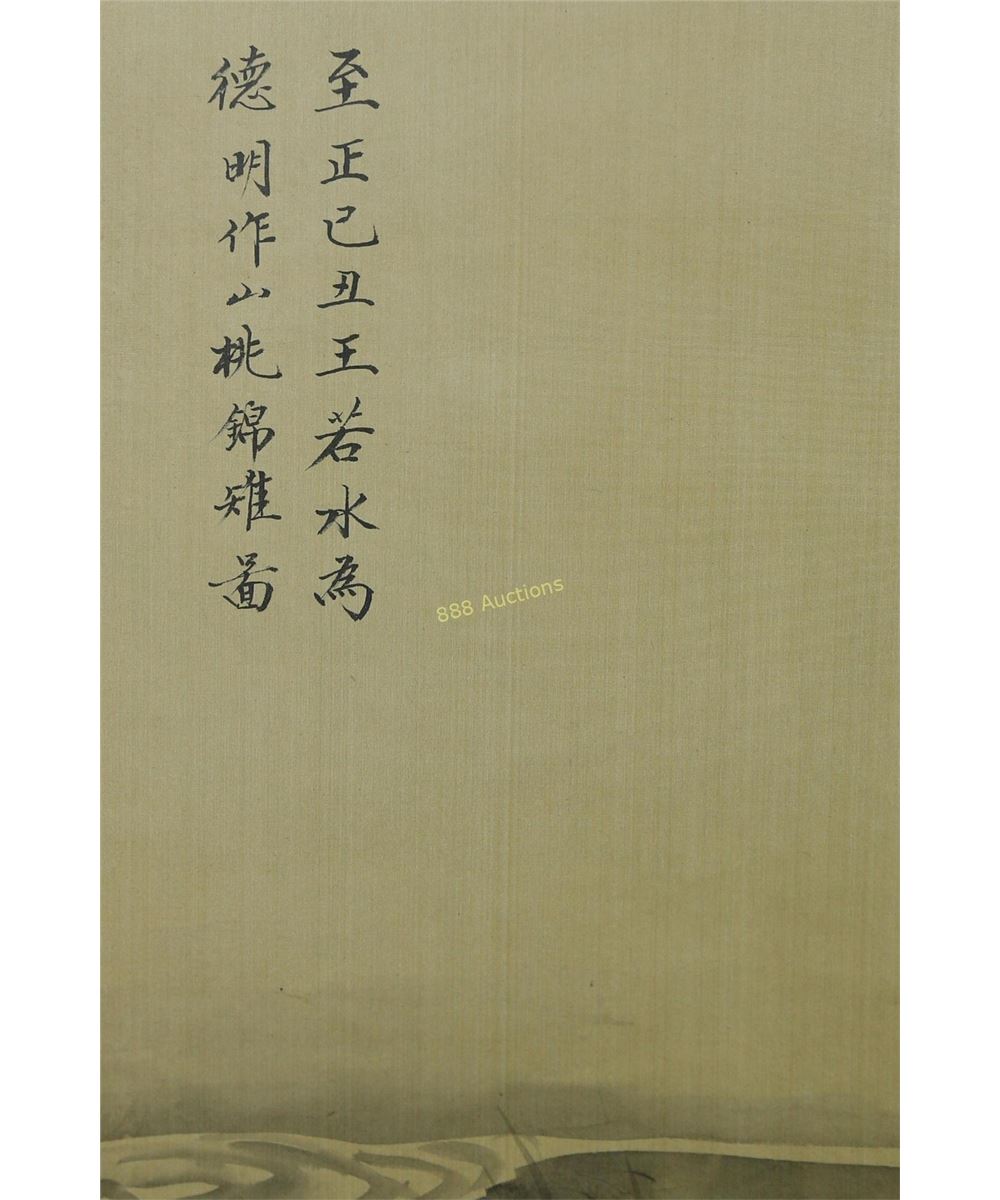 至正己丑王若水為
德明作山桃錦雉啚
888 Auctions